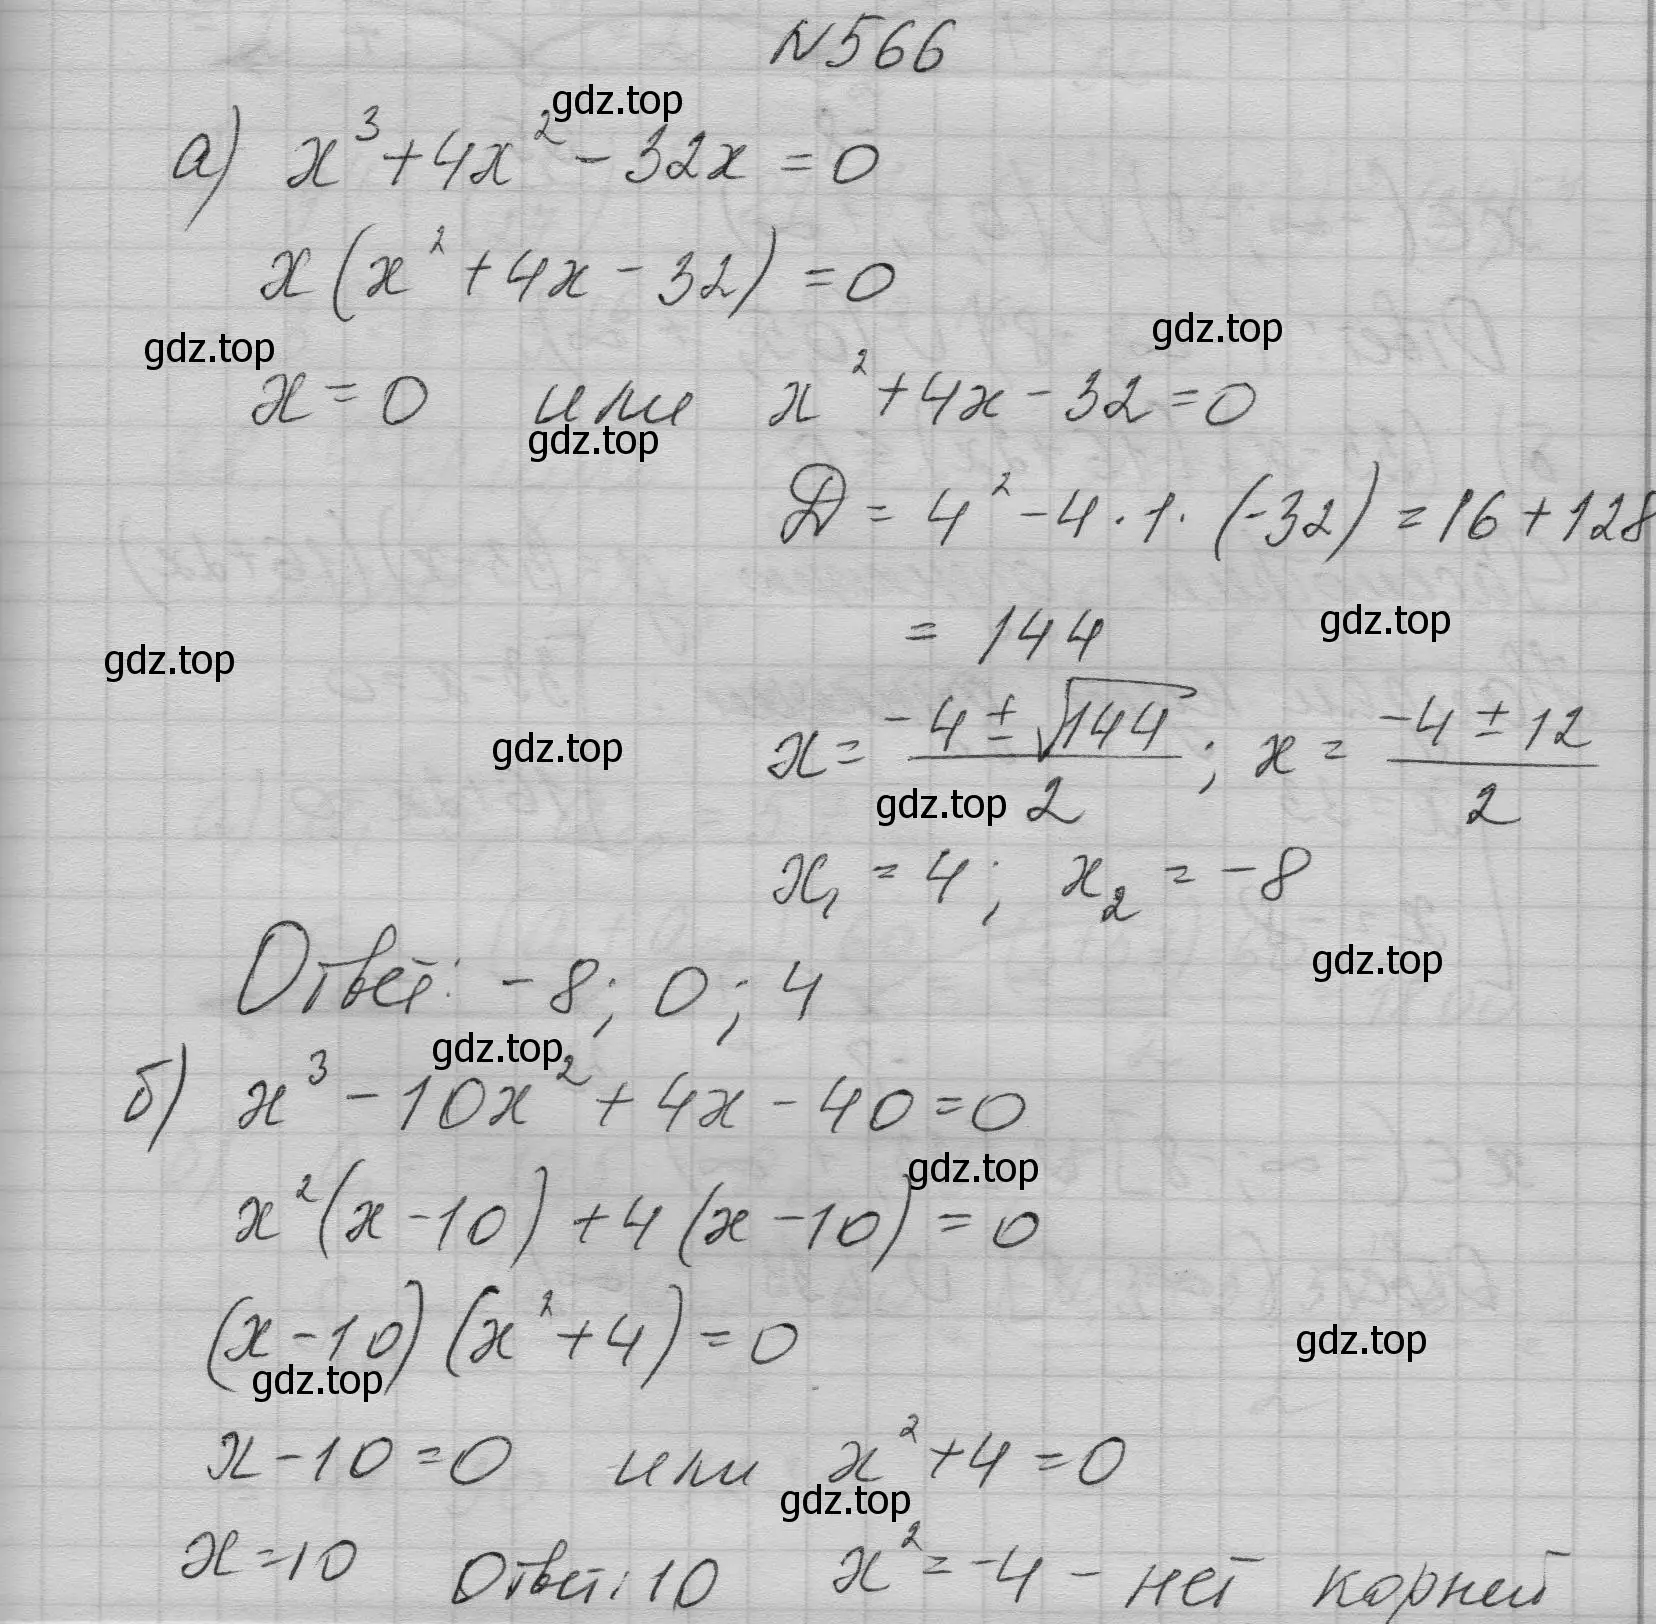 N566
gdz.top
а) x³+4x²-32x=0
x(x²+4x-32)=0
gdz.top
gdz.top
x=0 или x²+4x-32=0
gdz.top
D=4²-4·1·(-32)=16+128
=144
gdz.top
gdz.top
x=(-4±√144)/2; x=(-4±12)/2
gdz.top
gdz.top
x₁=4; x₂=-8
gdz.top
Ответ: -8; 0; 4
gdz.top
б) x³-10x²+4x-40=0
gdz.top
x²(x-10)+4(x-10)=0
(x-10)(x²+4)=0
gdz.top
gdz.top
x-10=0 или x²+4=0
gdz.top
x=10 Ответ: 10 x²=-4 - нет корней